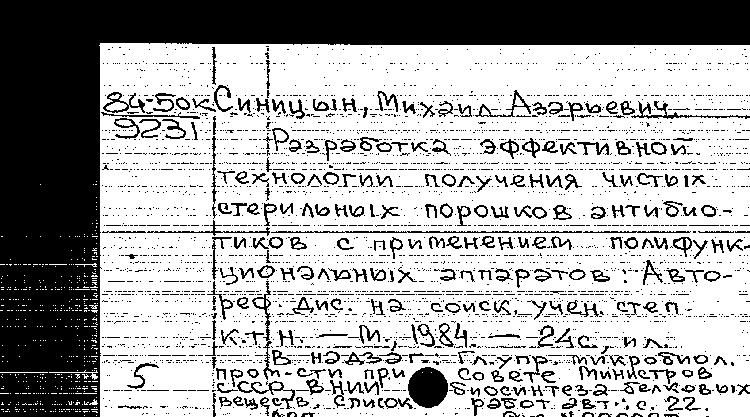 84-5ок Синицын, Михаил Азарьевич.
9231
Разработка эффективной
технологии получения чистых
стерильных порошков антибио-
тиков с применением полифунк-
циональных аппаратов: Авто-
реф. дис. на соиск. учен. степ.
к.т.н. — М., 1984. — 24с., ил.
В надзаг.: Гл. упр. микробиол.
пром-сти при Совете Министров
5
СССР, ВНИИ биосинтеза белковых
веществ. Список работ авт.: с. 22.